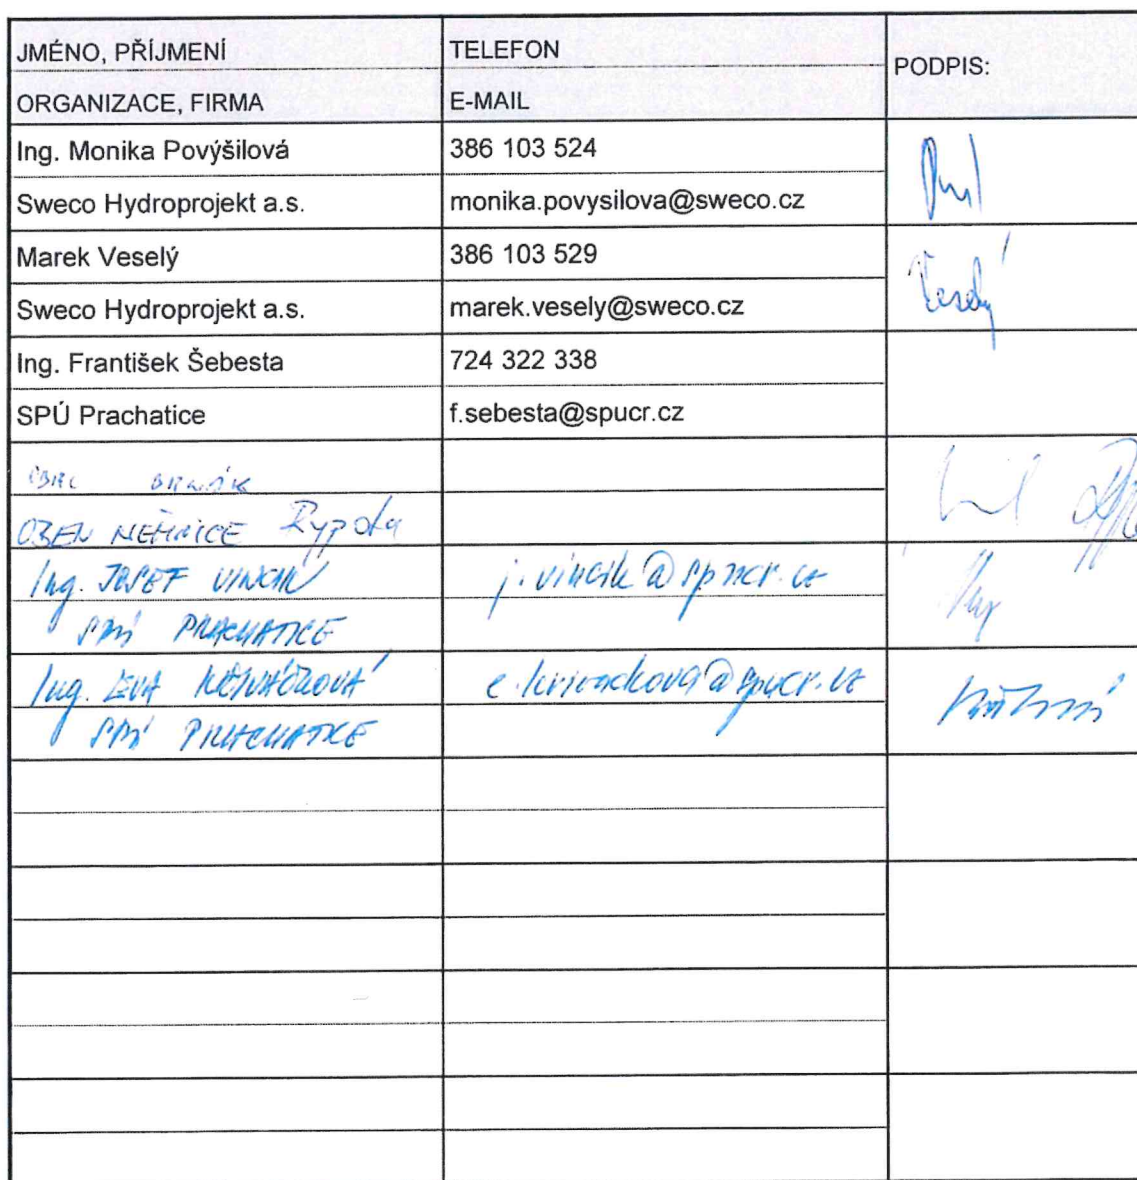 JMÉNO, PŘÍJMENÍ TELEFON
PODPIS:
ORGANIZACE, FIRMA E-MAIL
Ing. Monika Povýšilová 386 103 524
Sweco Hydroprojekt a.s. monika.povysilova@sweco.cz
Marek Veselý 386 103 529
Veselý
Sweco Hydroprojekt a.s. marek.vesely@sweco.cz
Ing. František Šebesta 724 322 338
SPÚ Prachatice f.sebesta@spucr.cz
Rypota
Ing. JOSEF VINCIK j.vincik@spucr.cz
SPÚ PRACHATICE
Ing. EVA KŘIVÁČKOVÁ e.krivackova@spucr.cz
SPÚ PRACHATICE